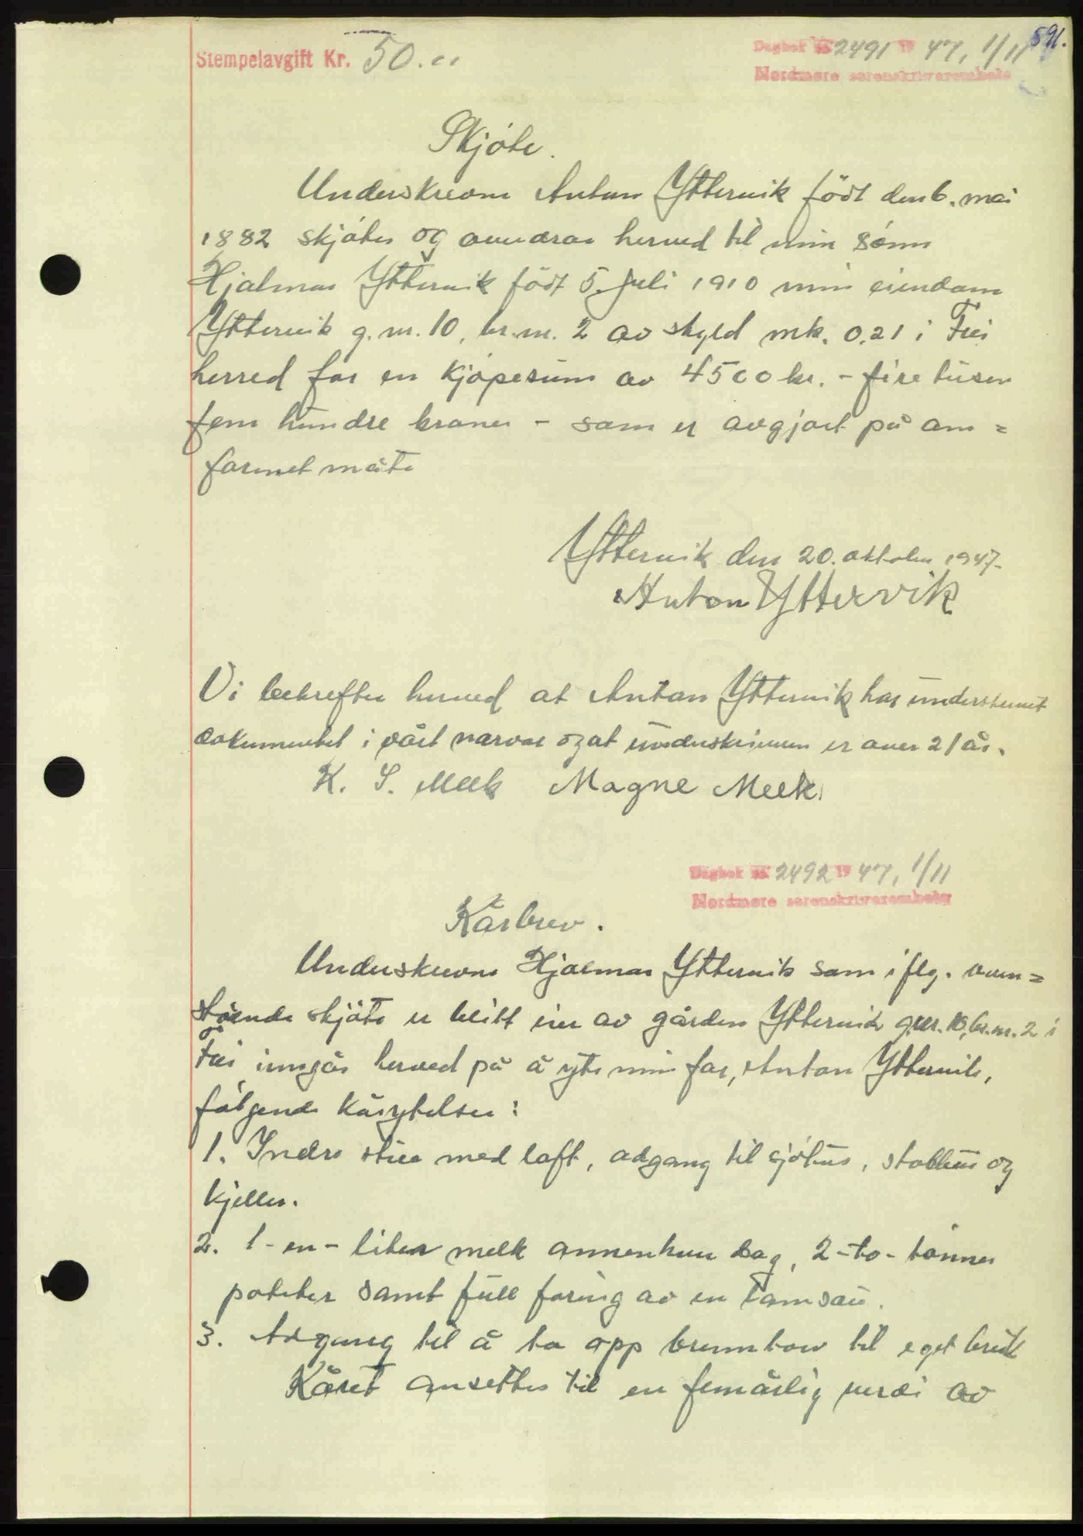 591.
Stempelavgift Kr. 50.00
Dagbok nr. 2491 19 47, 1/11
Nordmøre sorenskriverembete
Skjøte.
Underskrevne Anton Yttervik født den 6. mai
1882 skjøter og overdrar herved til min sønn
Hjalmar Yttervik født 5. juli 1910 min eiendom
Yttervik g.nr. 10, br.nr. 2 av skyld mk. 0.21 i Frei
herred for en kjøpesum av 4500 kr. - fire tusen
fem hundre kroner - som er avgjort på om=
forenet måte
Yttervik den 20. oktober 1947.
Anton Yttervik
Vi bekrefter herved at Anton Yttervik har understemt
dokumentet i vårt nærvær og at underskriveren er over 21 år.
K. S. Meek Magne Meek
Dagbok nr. 2492 19 47, 1/11
Nordmøre sorenskriverembete
Kårbrev.
Underskrevne Hjalmar Yttervik som iflg. oven=
stående skjøte er blitt eier av gården Yttervik g.nr. 10, br.nr. 2 i
Frei inngår herved på å yte min far, Anton Yttervik,
følgende kårytelser:
1. Indre stue med loft, adgang til sjøhus, stabbur og
kjeller.
2. 1 - en - liter melk annenhver dag, 2 - to - tønner
poteter samt full foring av en tamsau.
3. Adgang til å ta opp brenntorv til eget bruk
Kåret ansettes til en femårlig verdi av